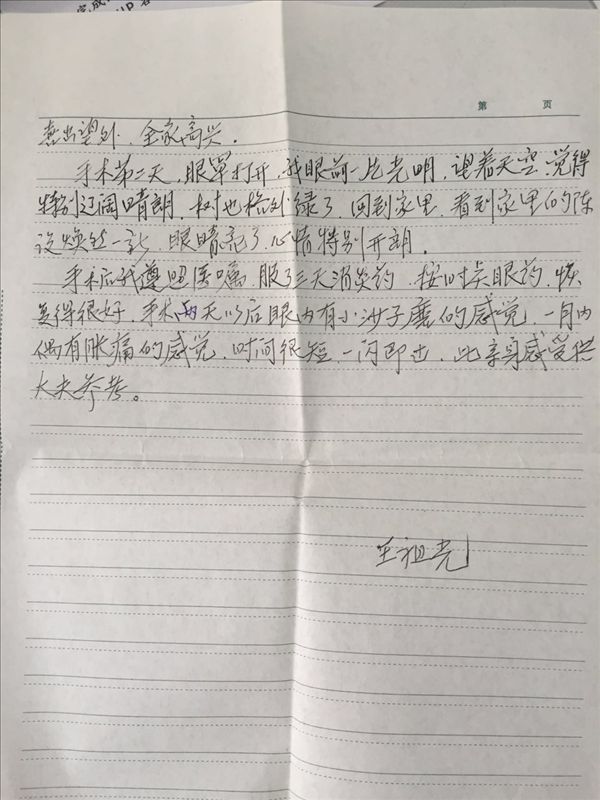 完成
第 页
喜出望外，全家高兴。
手术第二天，眼罩打开，我眼前一片光明，望着天空，觉得
特别辽阔晴朗，树也格外绿了，回到家里，看到家里的陈
设焕然一新，眼睛亮了，心情特别开朗。
手术后我遵照医嘱，服了三天消炎药，按时点眼药，恢
复得很好，手术两天以后眼内有小沙子磨的感觉，一月内
偶有胀痛的感觉，时间很短，一闪即过，此亲身感受供
大夫参考。
王祖光